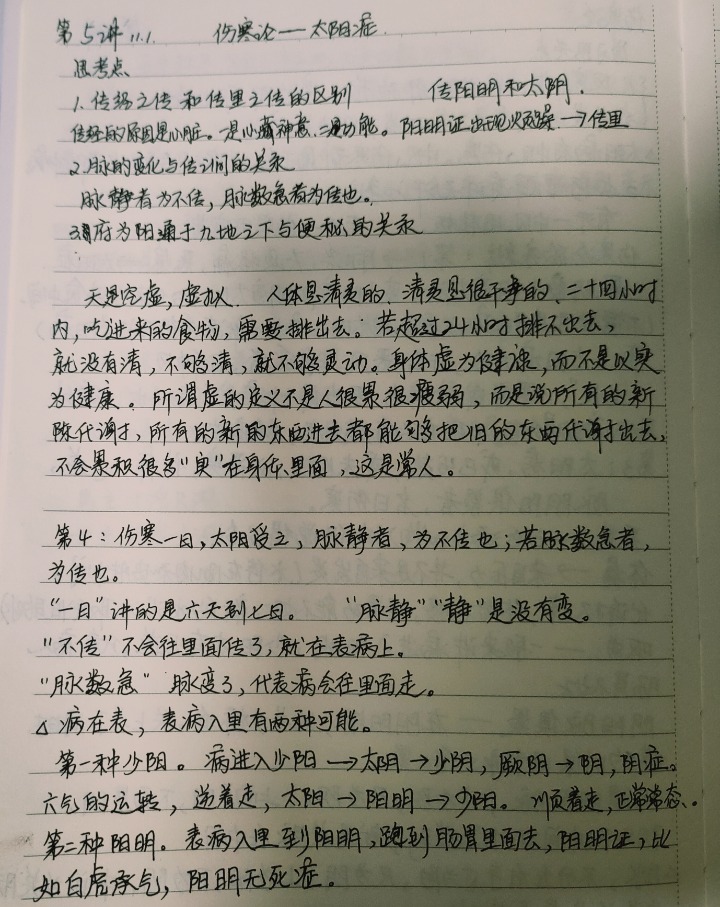 第5讲 11.1. 伤寒论——太阳症.
思考点
1. 传经之传和传里之传的区别 传阳明和太阴.
传经的原因是心脏。一是心藏神意,二是功能。阳明证出现火烦躁→传里
2. 脉的变化与传之间的关系
脉静者为不传,脉数急者为传也。
3. 府为阳通于九地之下与便秘的关系
天是空虚,虚拟. 人体是清灵的. 清灵是很干净的、二十四小时
内,吃进来的食物,需要排出去。若超过24小时排不出去,
就没有清,不够清,就不够灵动。身体虚为健康,而不是以实
为健康。所谓虚的定义不是人很累很瘦弱,而是说所有的新
陈代谢,所有的新的东西进去都能够把旧的东西代谢出去,
不会累积很多“实”在身体里面,这是常人。
第4:伤寒一日,太阳受之,脉静者,为不传也;若脉数急者,
为传也。
“一日”讲的是六天到七日。 “脉静”“静”是没有变。
“不传”不会往里面传了,就在表病上。
“脉数急” 脉变了,代表病会往里面走。
△病在表,表病入里有两种可能。
第一种少阳。病进入少阳→太阴→少阴,厥阴→阴,阴症。
六气的运转,逆着走,太阳→阳明→少阳。顺着走,正常常态、。
第二种阳明。表病入里到阳明,跑到肠胃里面去,阳明证,比
如白虎承气,阳明无死症。